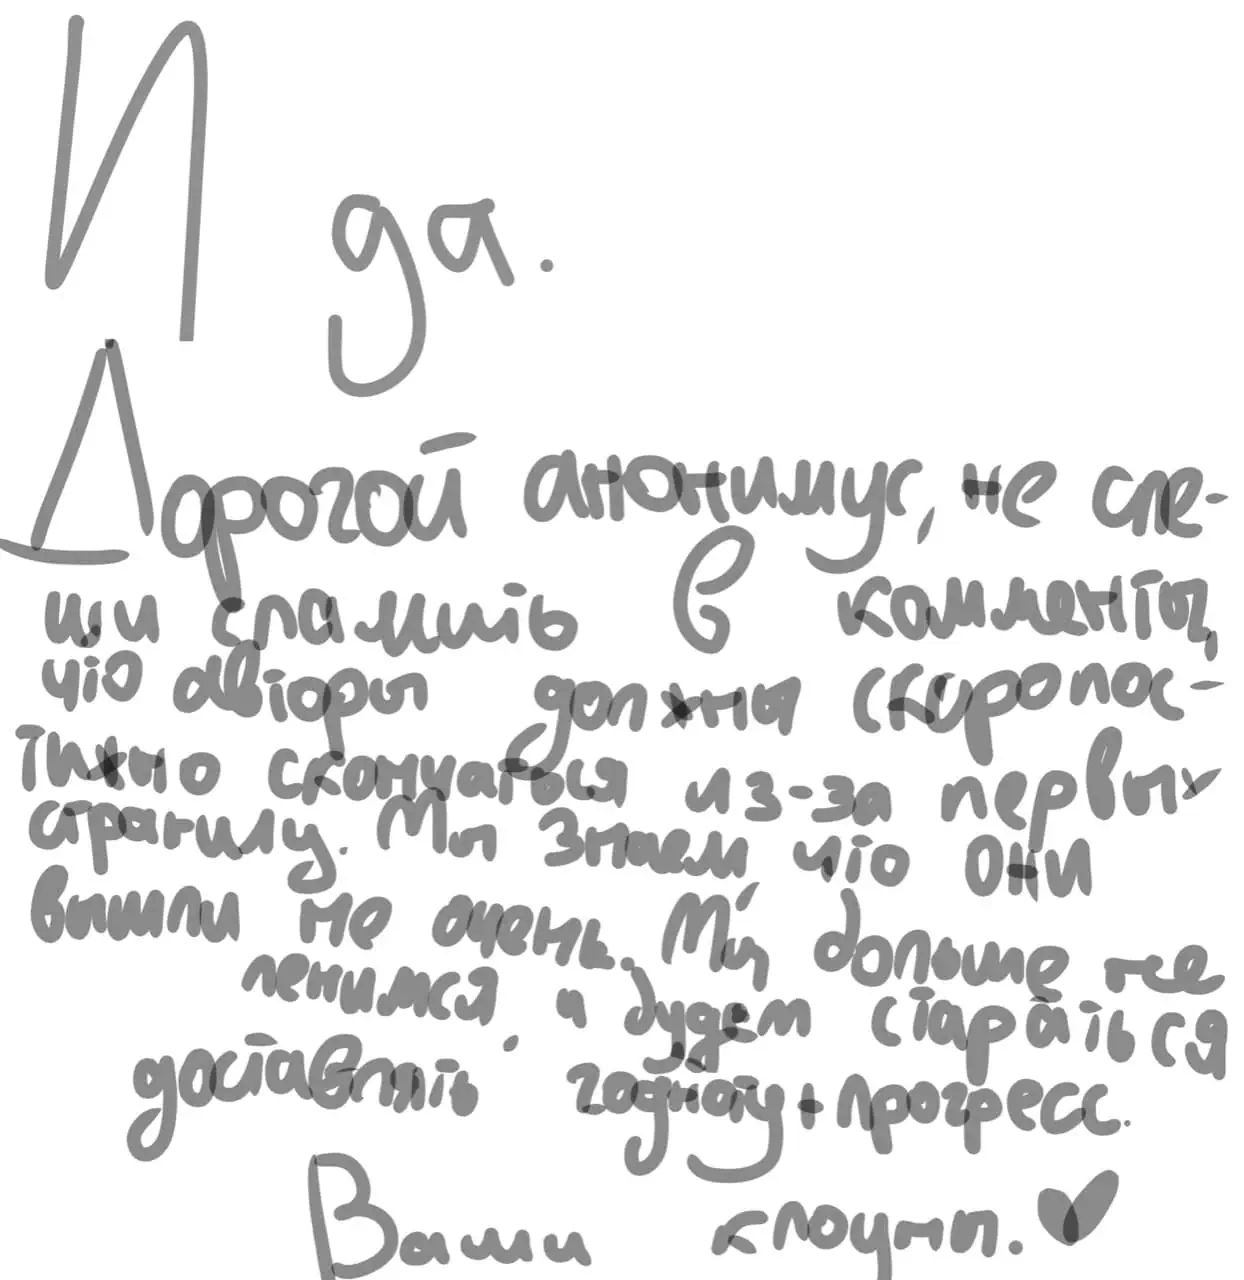 И да.
Дорогой анонимус, не спе-
ши спамить в комменты,
что авторы должны скоропос-
тижно скончаться из-за первых
страниц. Мы знаем, что они
вышли не очень. Мы больше не
ленимся, и будем стараться
доставлять годноту+прогресс.
Ваши клоуны.